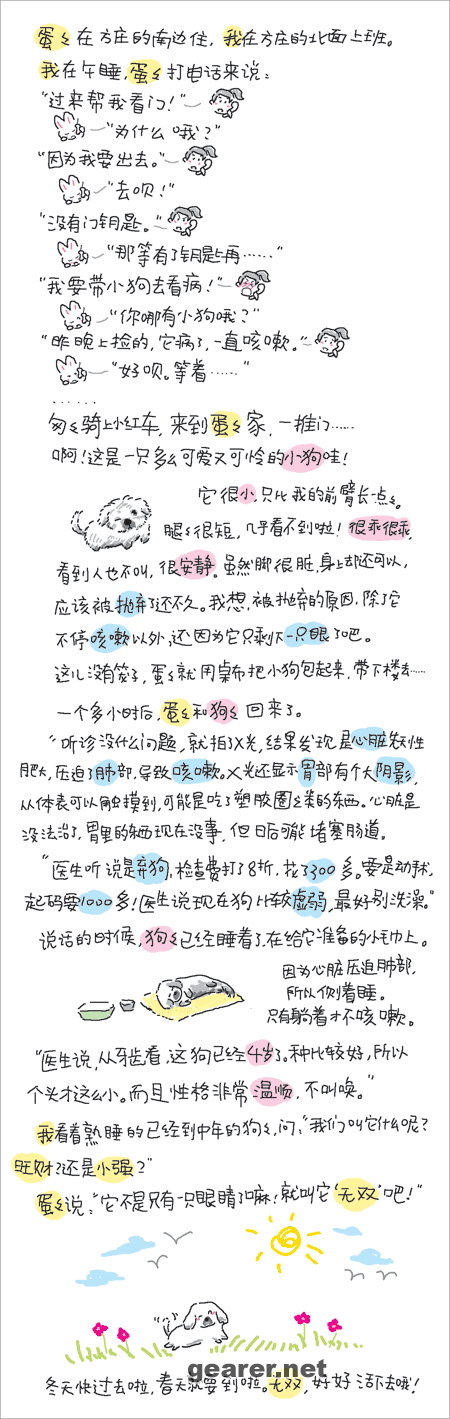 蛋々在方庄的南边住，我在方庄的北面上班。
我在午睡，蛋々打电话来说：
“过来帮我看门！”
“为什么哦？”
“因为我要出去。”
“去呗！”
“没有门钥匙。”
“那等有了钥匙再……”
“我要带小狗去看病！”
“你哪有小狗哦？”
“昨晚上捡的，它病了，一直咳嗽。”
“好呗。等着……”
……
匆々骑上小红车，来到蛋々家，一推门……
啊！这是一只多么可爱又可怜的小狗哇！
它很小，只比我的前臂长一点。
腿々很短，几乎看不到啦！很乖很乖，
看到人也不叫，很安静。虽然脚很脏，身上却还可以，
应该被抛弃了还不久。我想，被抛弃的原因，除了它
不停咳嗽以外，还因为它只剩下一只眼了吧。
这儿没有笼子，蛋々就用桌布把小狗包起来，带下楼去……
一个多小时后，蛋々和狗々回来了。
“听诊没什么问题，就拍了X光，结果发现是心脏先天性
肥大，压迫了肺部，导致咳嗽。X光还显示胃部有个大阴影，
从体表可以触摸到，可能是吃了塑胶圈之类的东西。心脏是
没法治了，胃里的东西现在没事，但日后可能堵塞肠道。
“医生听说是弃狗，检查费打了8折，花了300多。要是动手术，
起码要1000多！医生说现在狗比较虚弱，最好别洗澡。”
说话的时候，狗々已经睡着了，在给它准备的小毛巾上。
因为心脏压迫肺部，
所以侧着睡。
只有躺着才不咳嗽。
“医生说，从牙齿看，这狗已经4岁了。种比较好，所以
个头才这么小。而且性格非常温顺，不叫唤。”
我看着熟睡的已经到中年的狗々，问：“我们叫它什么呢？
旺财？还是小强？”
蛋々说：“它不是只有一只眼睛了嘛！就叫它‘无双’吧！”
gearer.net
冬天快过去啦，春天就要到啦。无双，好好活下去哦！